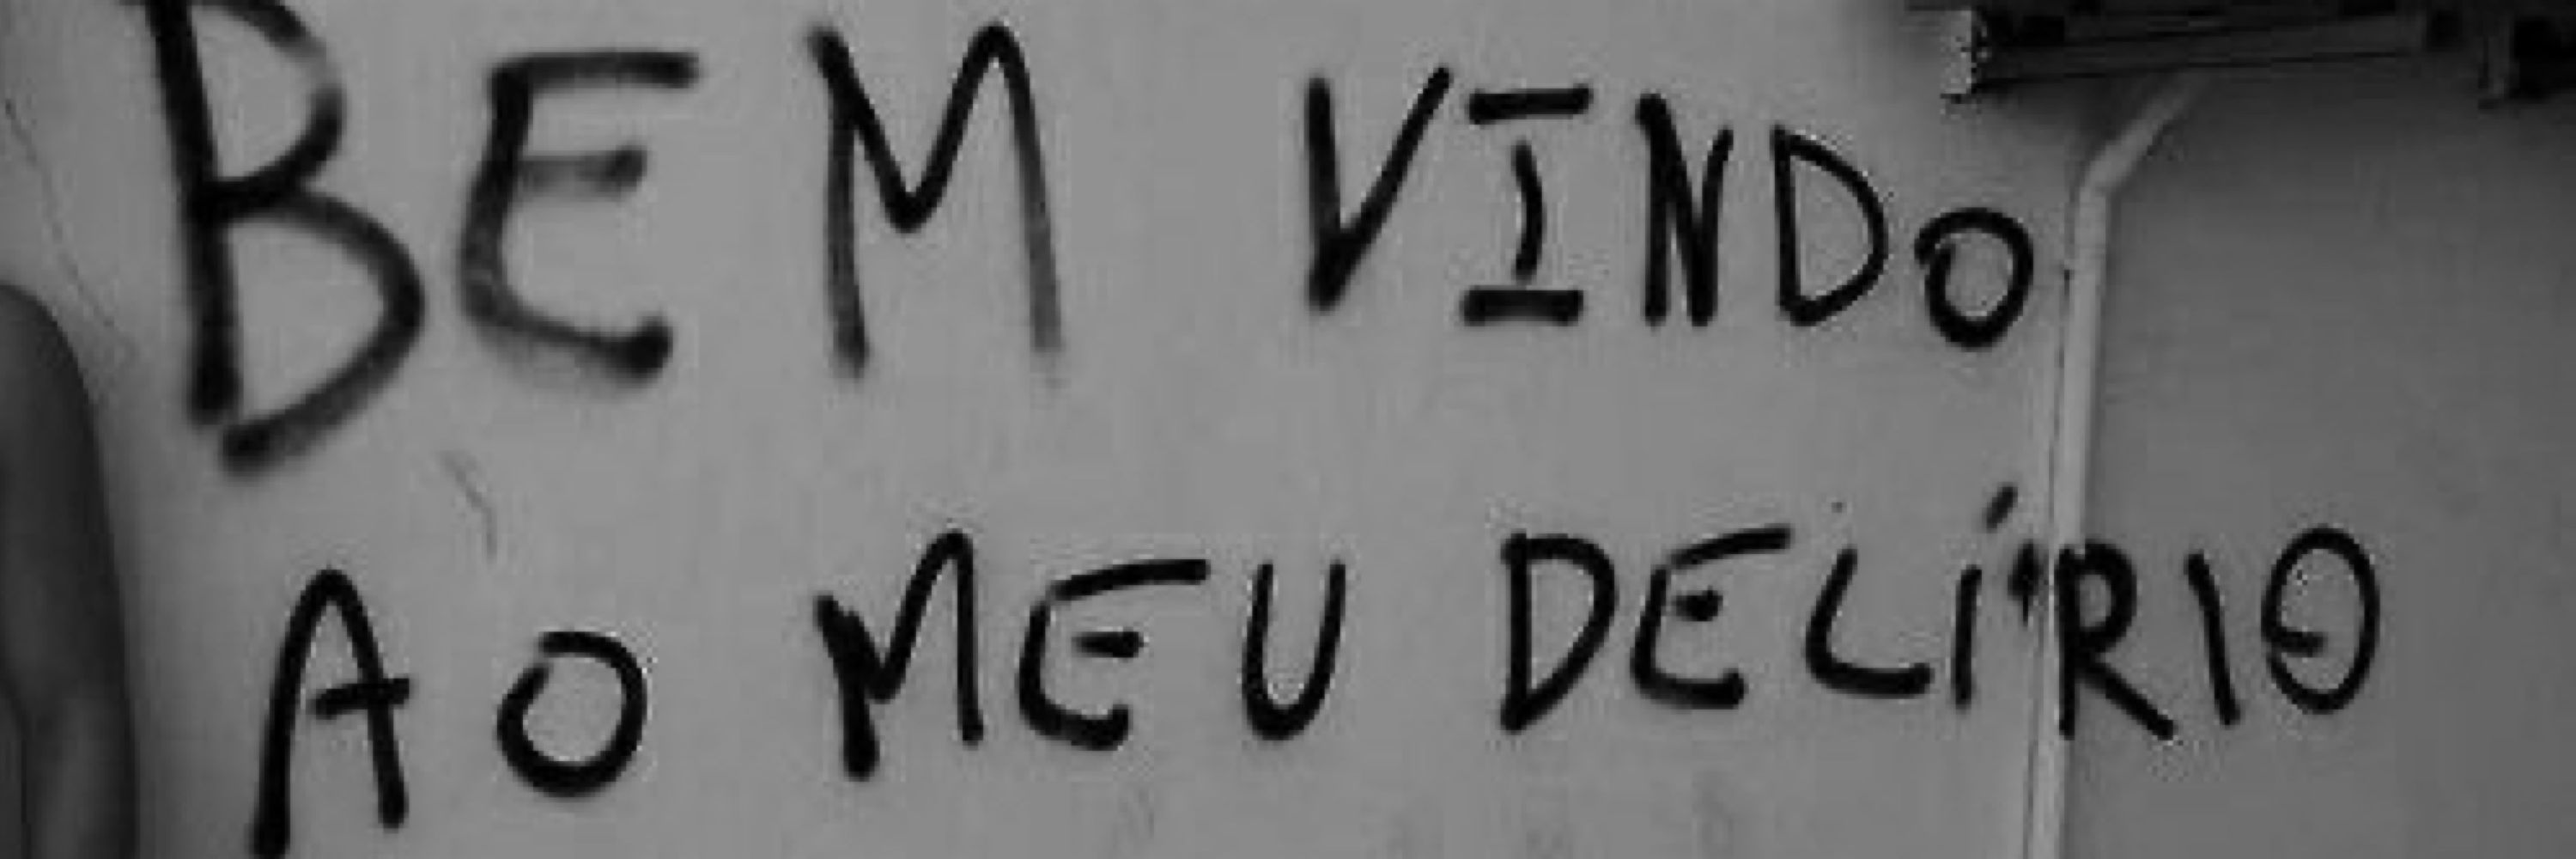 BEM VINDO
AO MEU DELÍRIO